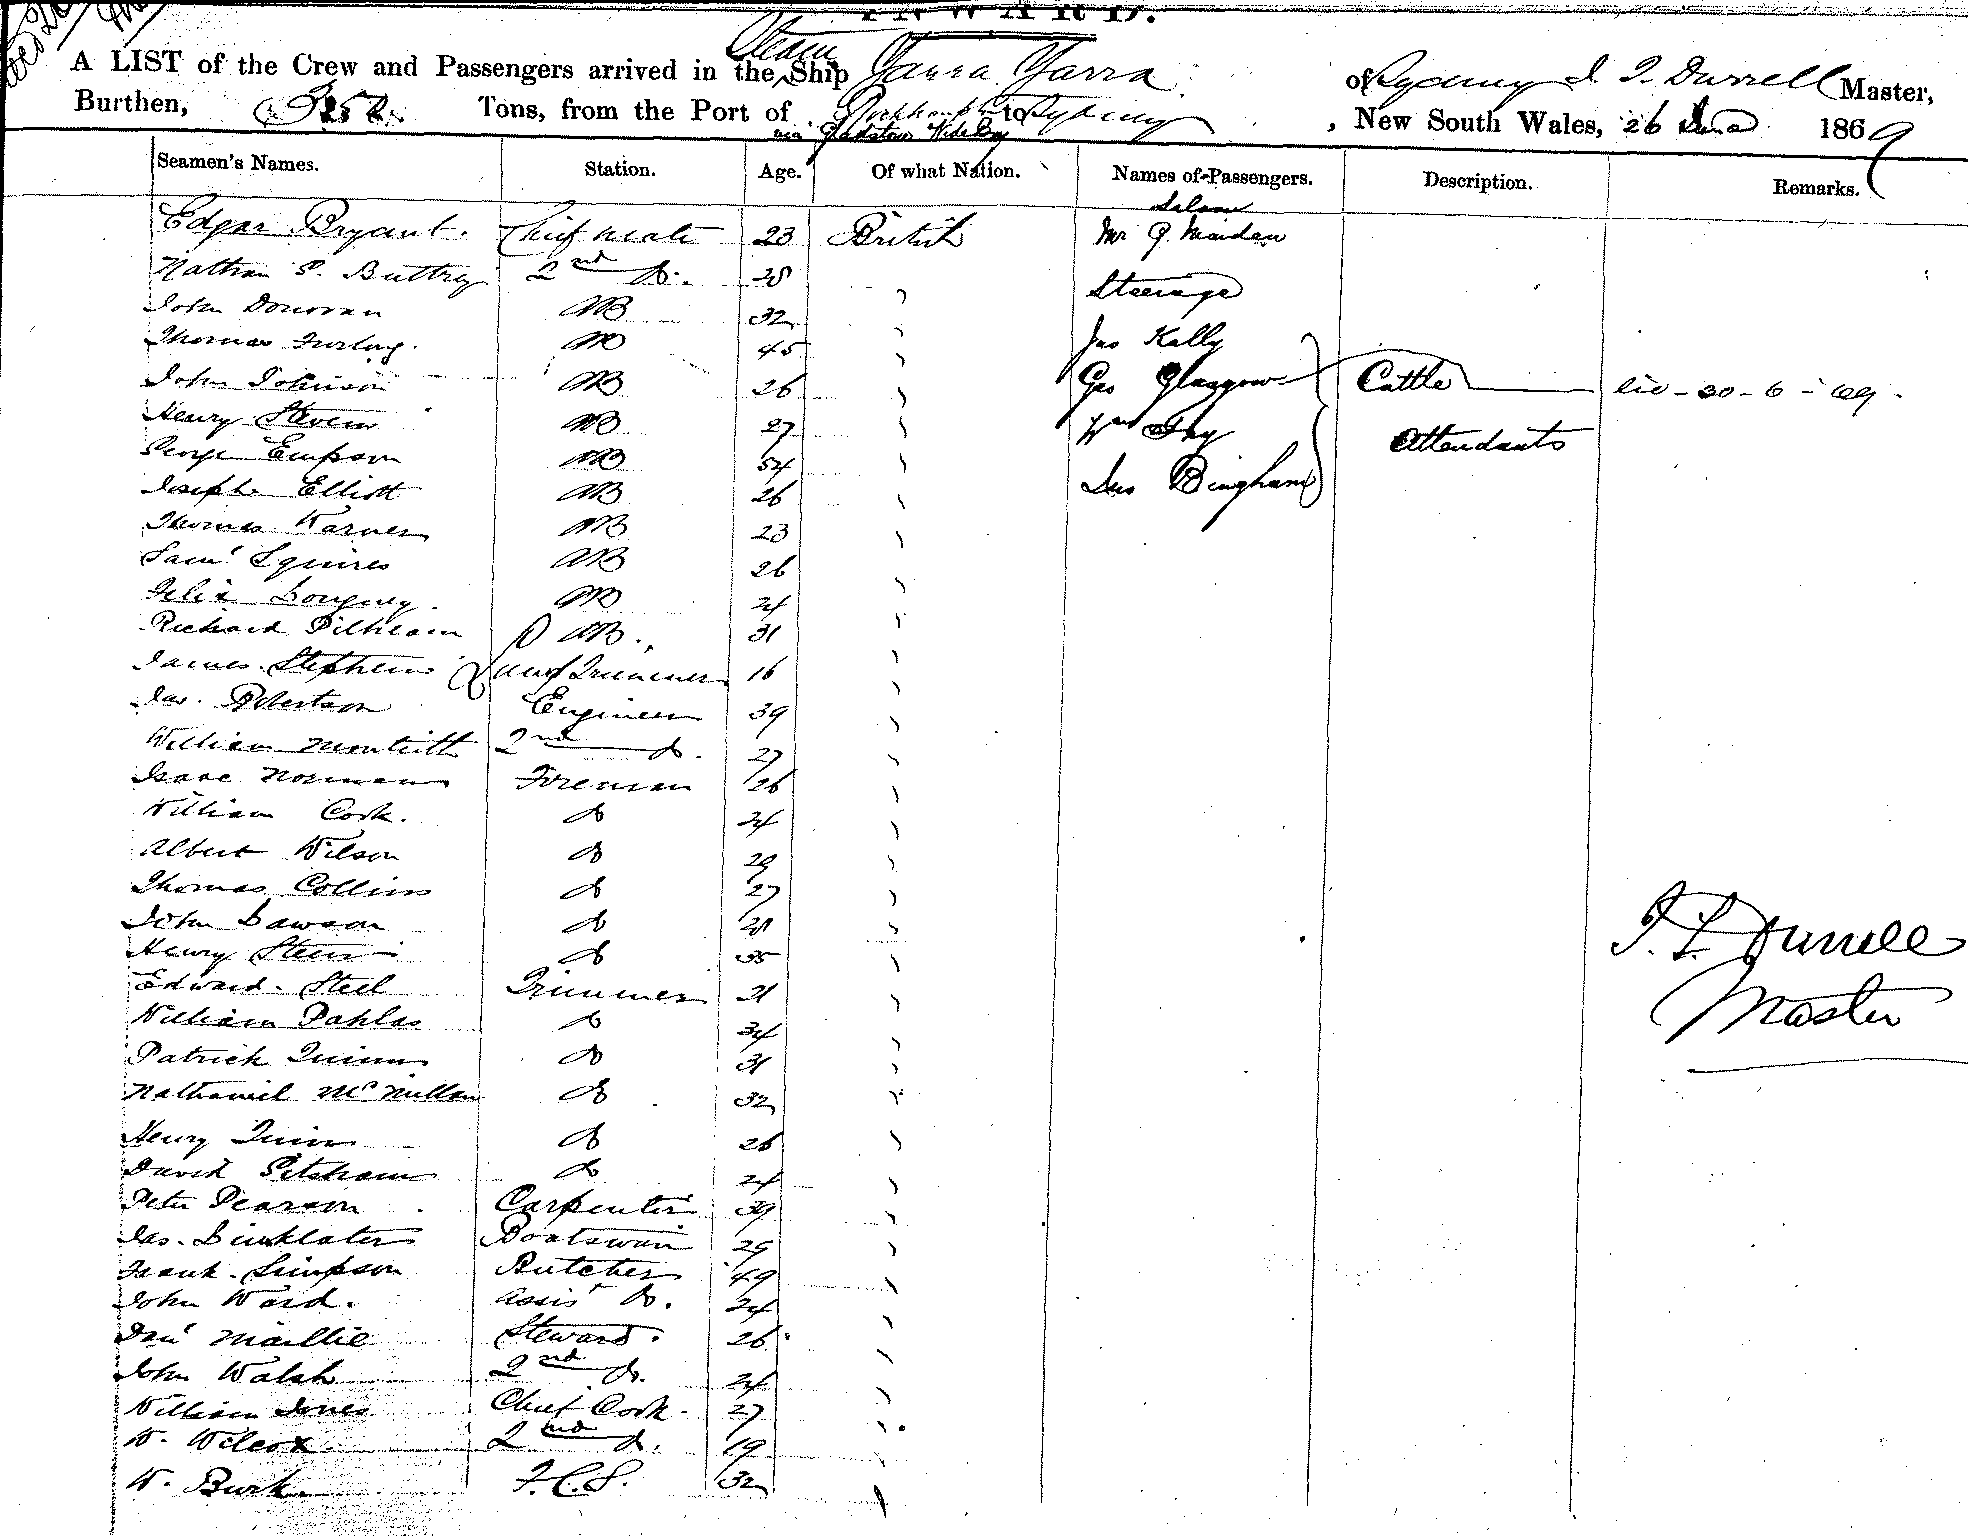 INWARD.
A LIST of the Crew and Passengers arrived in the Steam Ship Yarra Yarra of Sydney Durrell Master,
Burthen, Tons, from the Port of Rockhampton to Sydney, New South Wales, 26 June 1869
via Gladstone Wide Bay
Seamen's Names. Station. Age. Of what Nation. Names of Passengers. Description. Remarks.
Saloon
Edgar Bryant. Chief Mate 23 British Mr J. Maiden
Nathan S. Buttrey 2nd Do. 28
Steerage
John Donovan AB 32
Thomas Furlong. AB 45 Jas Kelly
John Johnson AB 26 Geo Glasgow Cattle 20-6-69.
Henry Stevens AB 27 Wm Fay
George Empson AB 54 Attendants
Joseph Elliott AB 26 Jas Bingham
Thomas Warner AB 23
Saml Squires AB 26
Felix AB 24
Richard Pilbeam AB. 31
James Stephens Lamp Trimmer 16
Jas. Robertson Engineer 39
William Monteith 2nd Do. 27
Isaac Norman Fireman 26
William Cook. Do 24
Albert Wilson Do 29
Thomas Collins Do 27
John Dawson Do
J. L. Durrell
Henry Do 35
Edward Steel Trimmer 21
Master
William Pahlas Do 34
Patrick Quinn Do 31
Nathaniel McMillan Do 32
Henry Quinn Do 26
David Do 24
Peter Pearson Carpenter 39
Jas. Linklater Boatswain 29
Frank Simpson Butcher 49
John Ward. Assist Do. 24
Danl Maillie Steward. 26
John Walsh 2nd Do. 24
William Jones Chief Cook. 27
W. Wilcox 2nd Do. 19
W. Burk F.C.S. 32